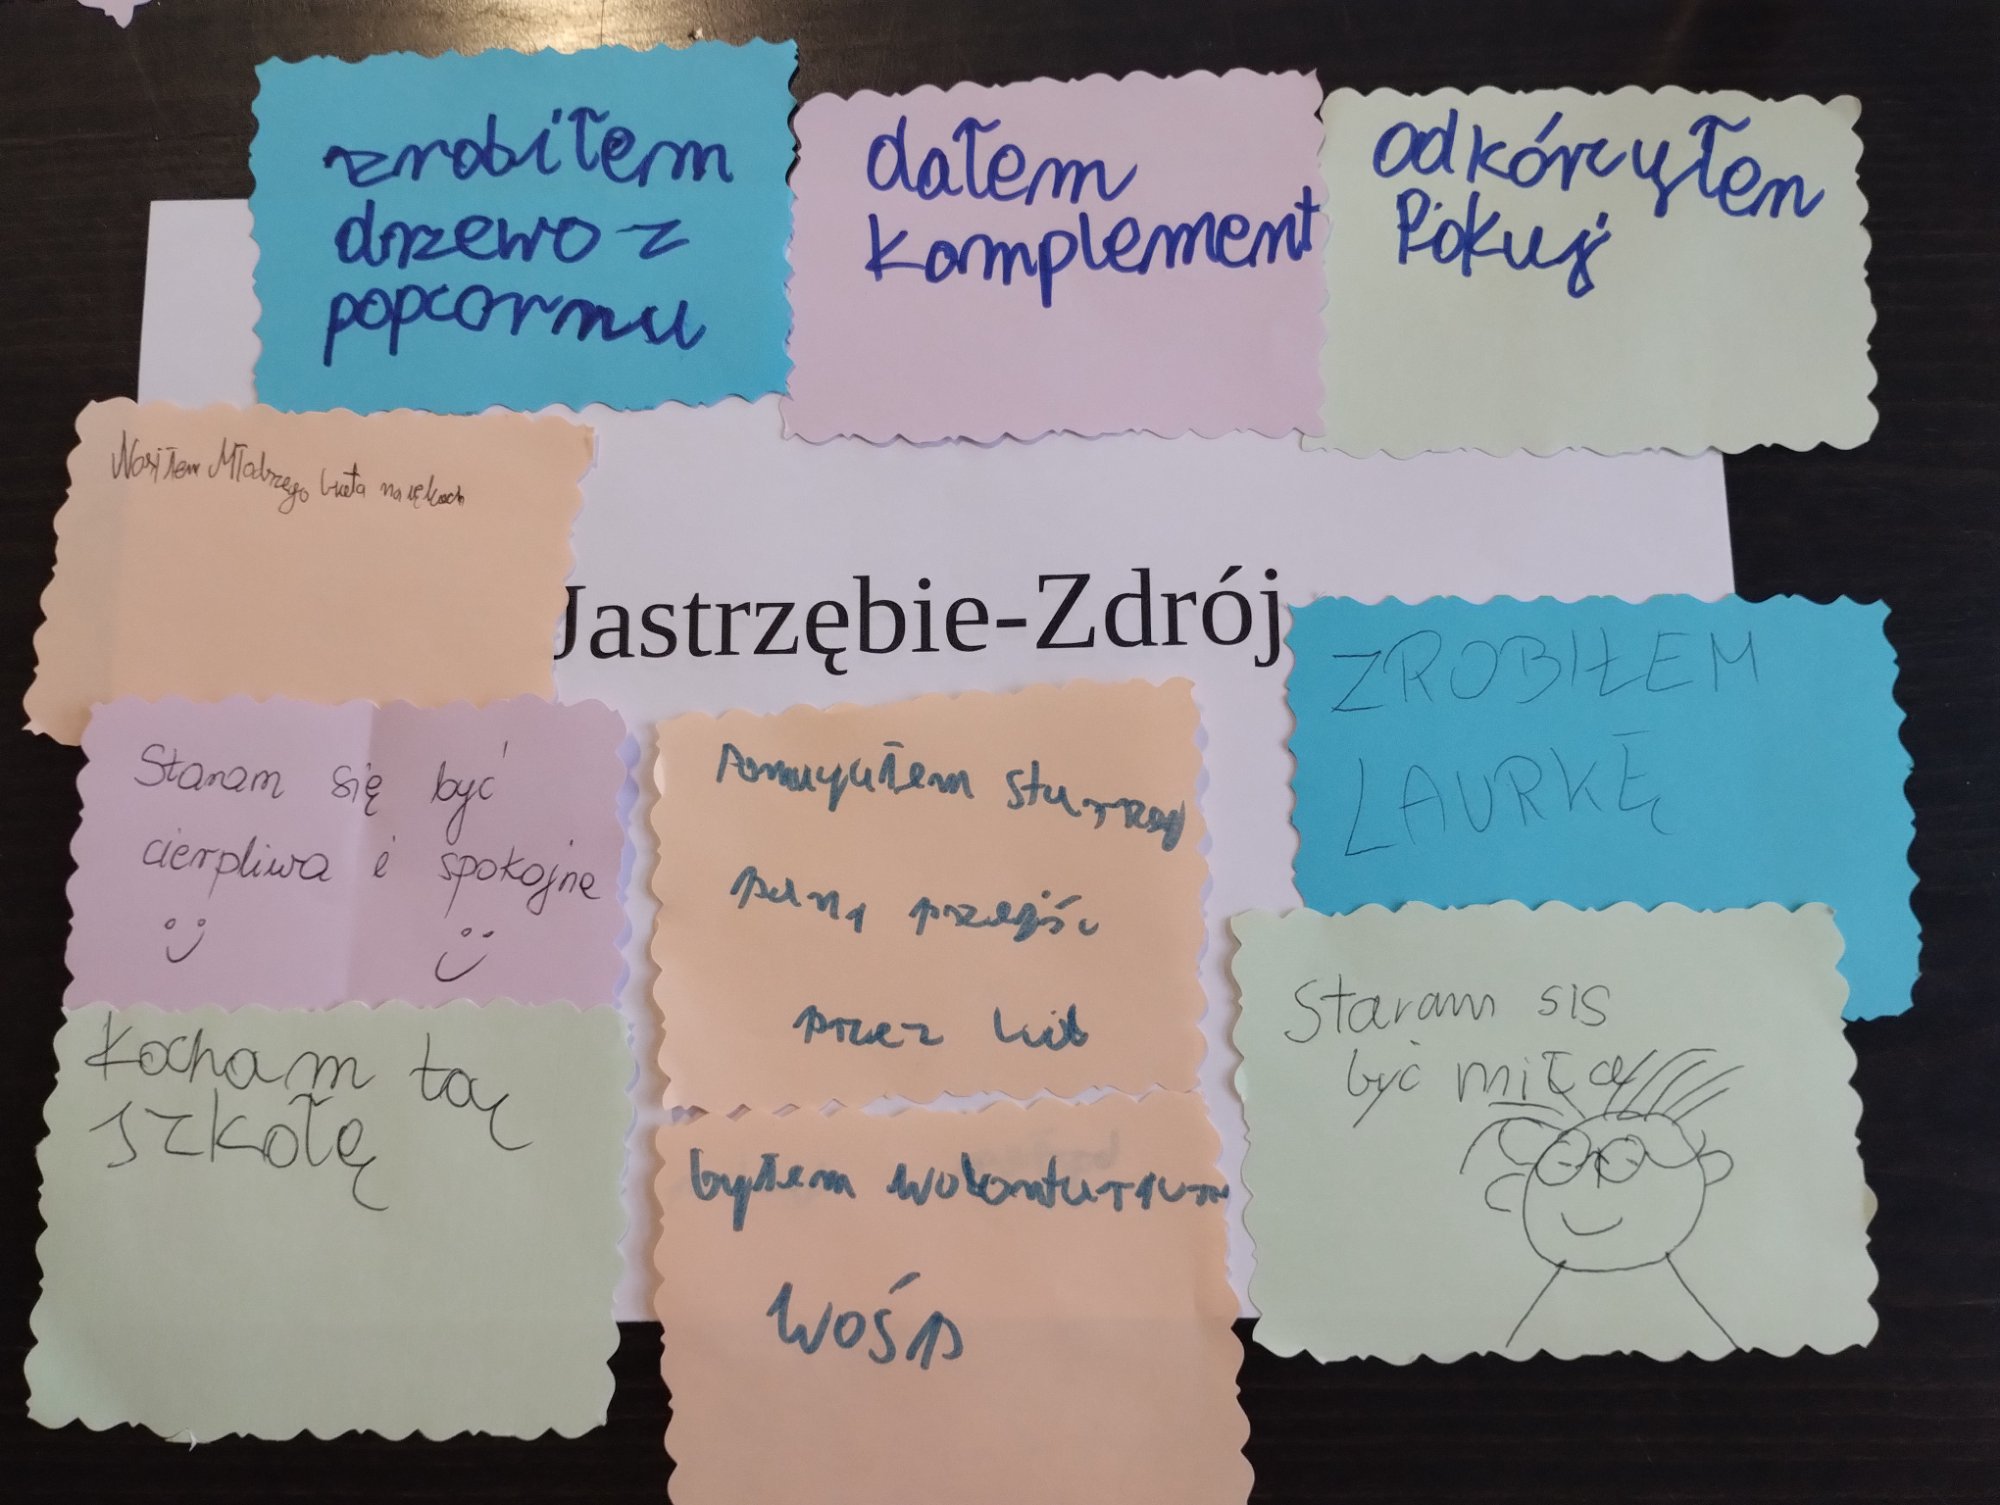 zrobiłem
drzewo z
popcornu
dałem
komplement
odkórzyłem
Pokuj
Nosiłem Młodrzego brata na rękach
Jastrzębie-Zdrój
ZROBIŁEM
LAURKĘ
Staram się być
cierpliwa i spokojna
Pomugułem starzej
pani przejść
przez
Staram sis
być miła
Kocham tą
szkołę
byłem wolonturium
WOŚP